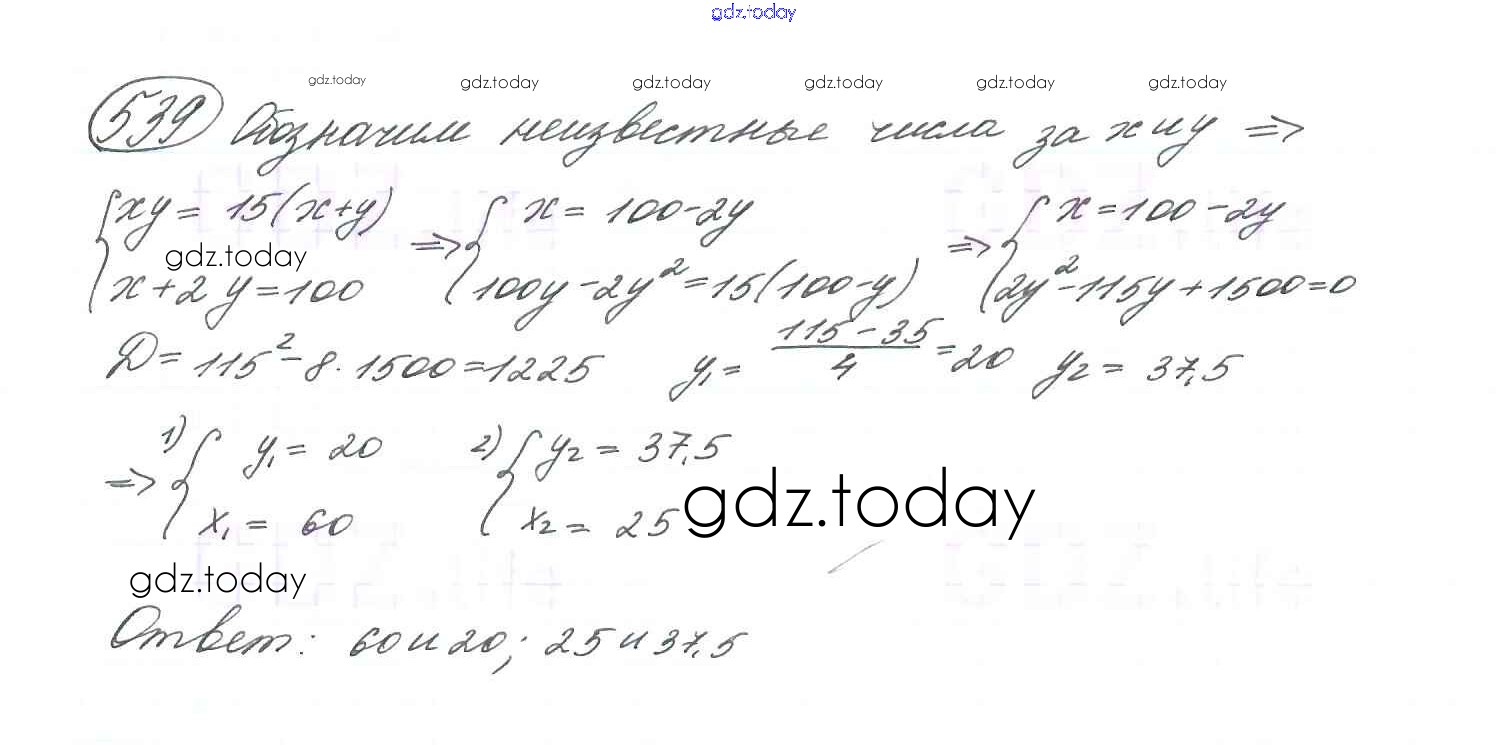 gdz.today
gdz.today gdz.today gdz.today gdz.today gdz.today gdz.today
539 Обозначим неизвестные числа за x и y =>
{xy = 15(x+y) => {x = 100-2y => {x = 100-2y
gdz.today
{x+2y=100 {100y-2y²=15(100-y) {2y²-115y+1500=0
Д= 115²-8·1500=1225 y₁= (115-35)/4 =20 y₂= 37,5
=> 1) {y₁= 20 2) {y₂= 37,5
{x₁= 60 {x₂= 25 gdz.today
gdz.today
Ответ: 60 и 20; 25 и 37,5